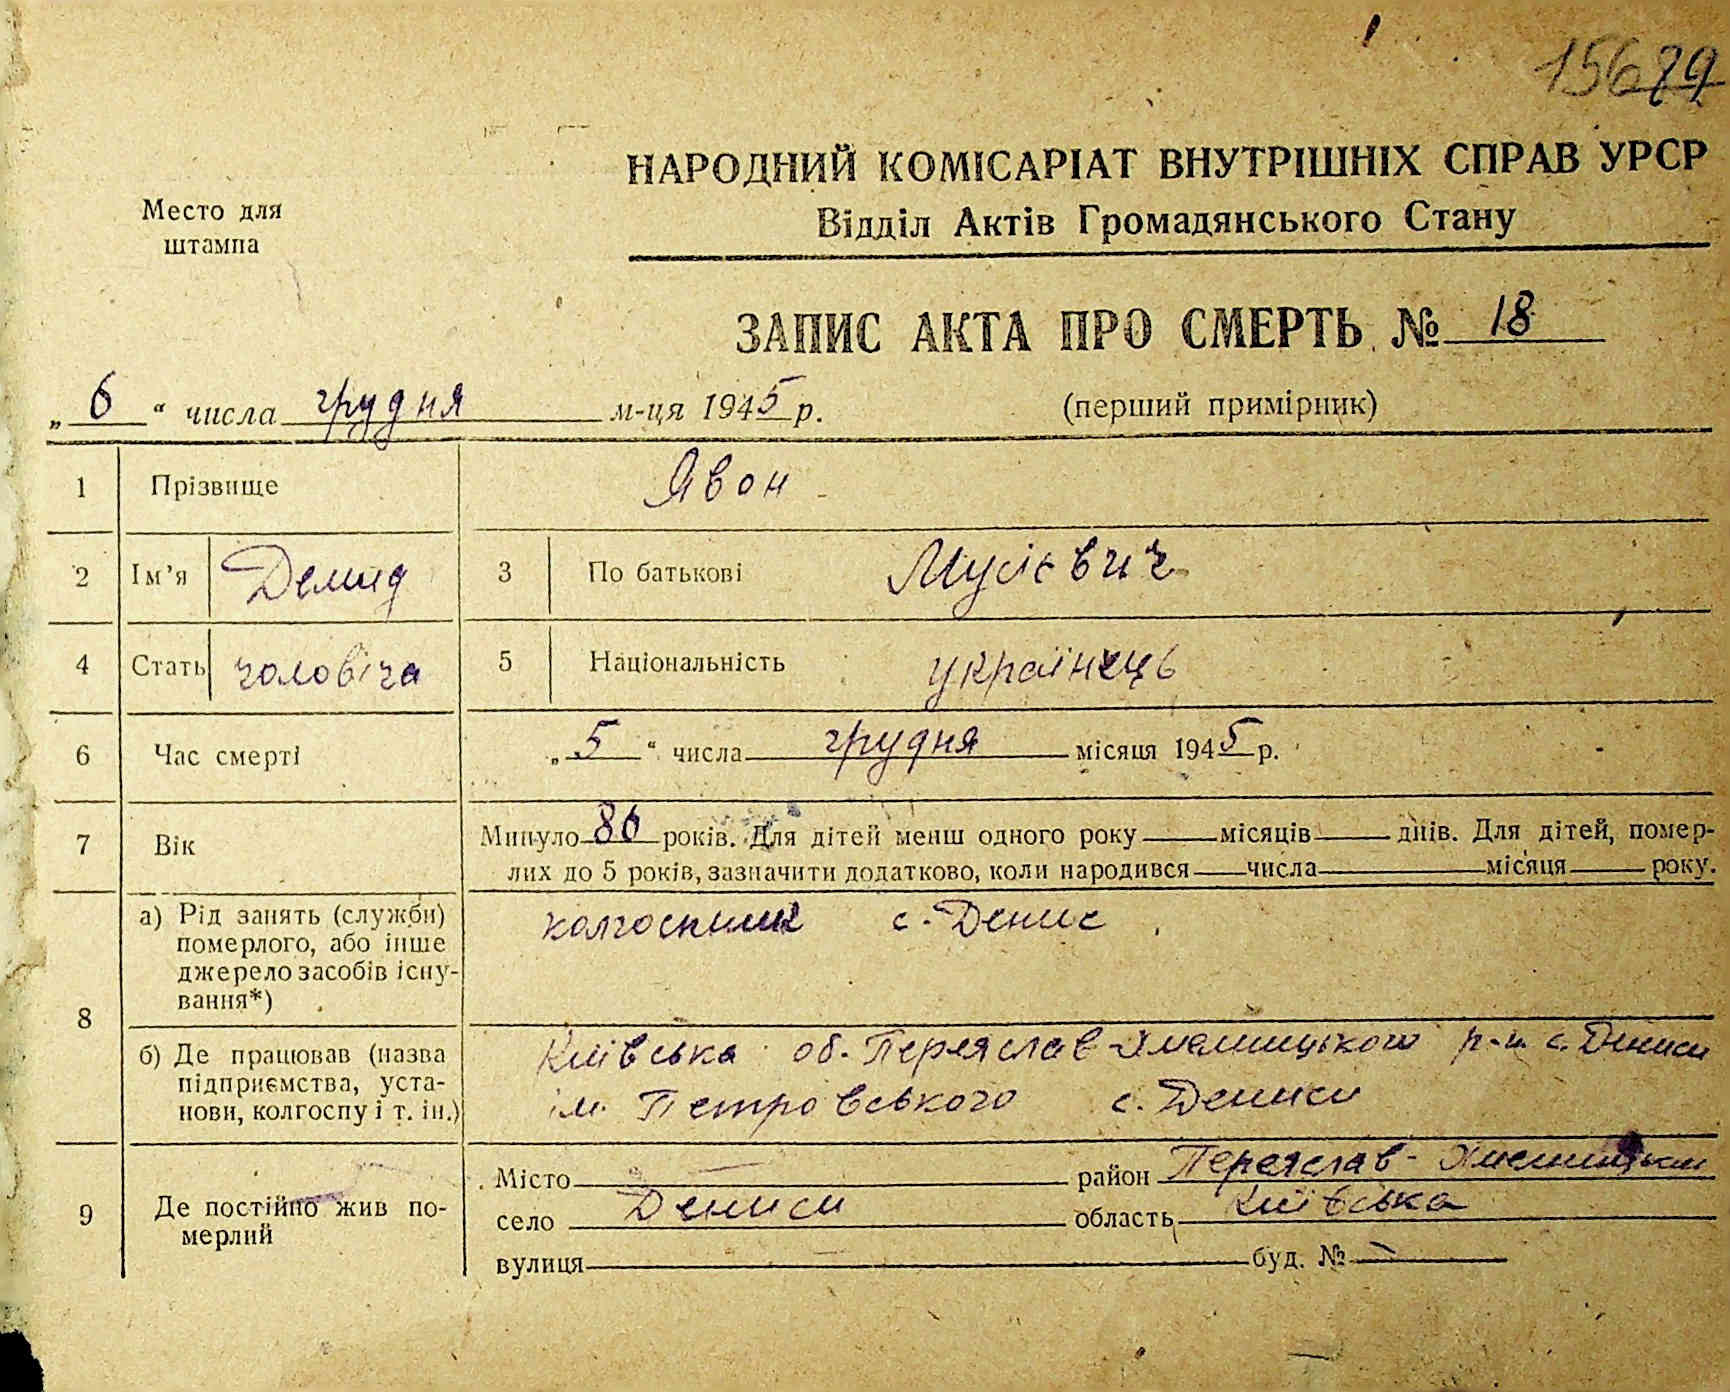 НАРОДНИЙ КОМІСАРІАТ ВНУТРІШНІХ СПРАВ УРСР
Відділ Актів Громадянського Стану
Место для
штампа
ЗАПИС АКТА ПРО СМЕРТЬ № 18
„ 6 “ числа грудня м-ця 1945 р. (перший примірник)
1 Прізвище Явон
2 Ім’я Демид 3 По батькові Мусієвич
4 Стать чоловіча 5 Національність українець
6 Час смерті „ 5 “ числа грудня місяця 1945 р.
7 Вік Минуло 86 років. Для дітей менш одного року — місяців — днів. Для дітей, помер-
лих до 5 років, зазначити додатково, коли народився — числа — місяця — року.
8 а) Рід занять (служби) померлого, або інше джерело засобів існу-вання*) колгоспник с. Денис
б) Де працював (назва підприємства, уста-нови, колгоспу і т. ін.) Київська об. Переяслав-Хмельницького р-н с. Дениси
ім. Петровського с. Дениси
9 Де постійно жив по-мерлий Місто район Переяслав-
село Дениси область Київська
вулиця буд. № —